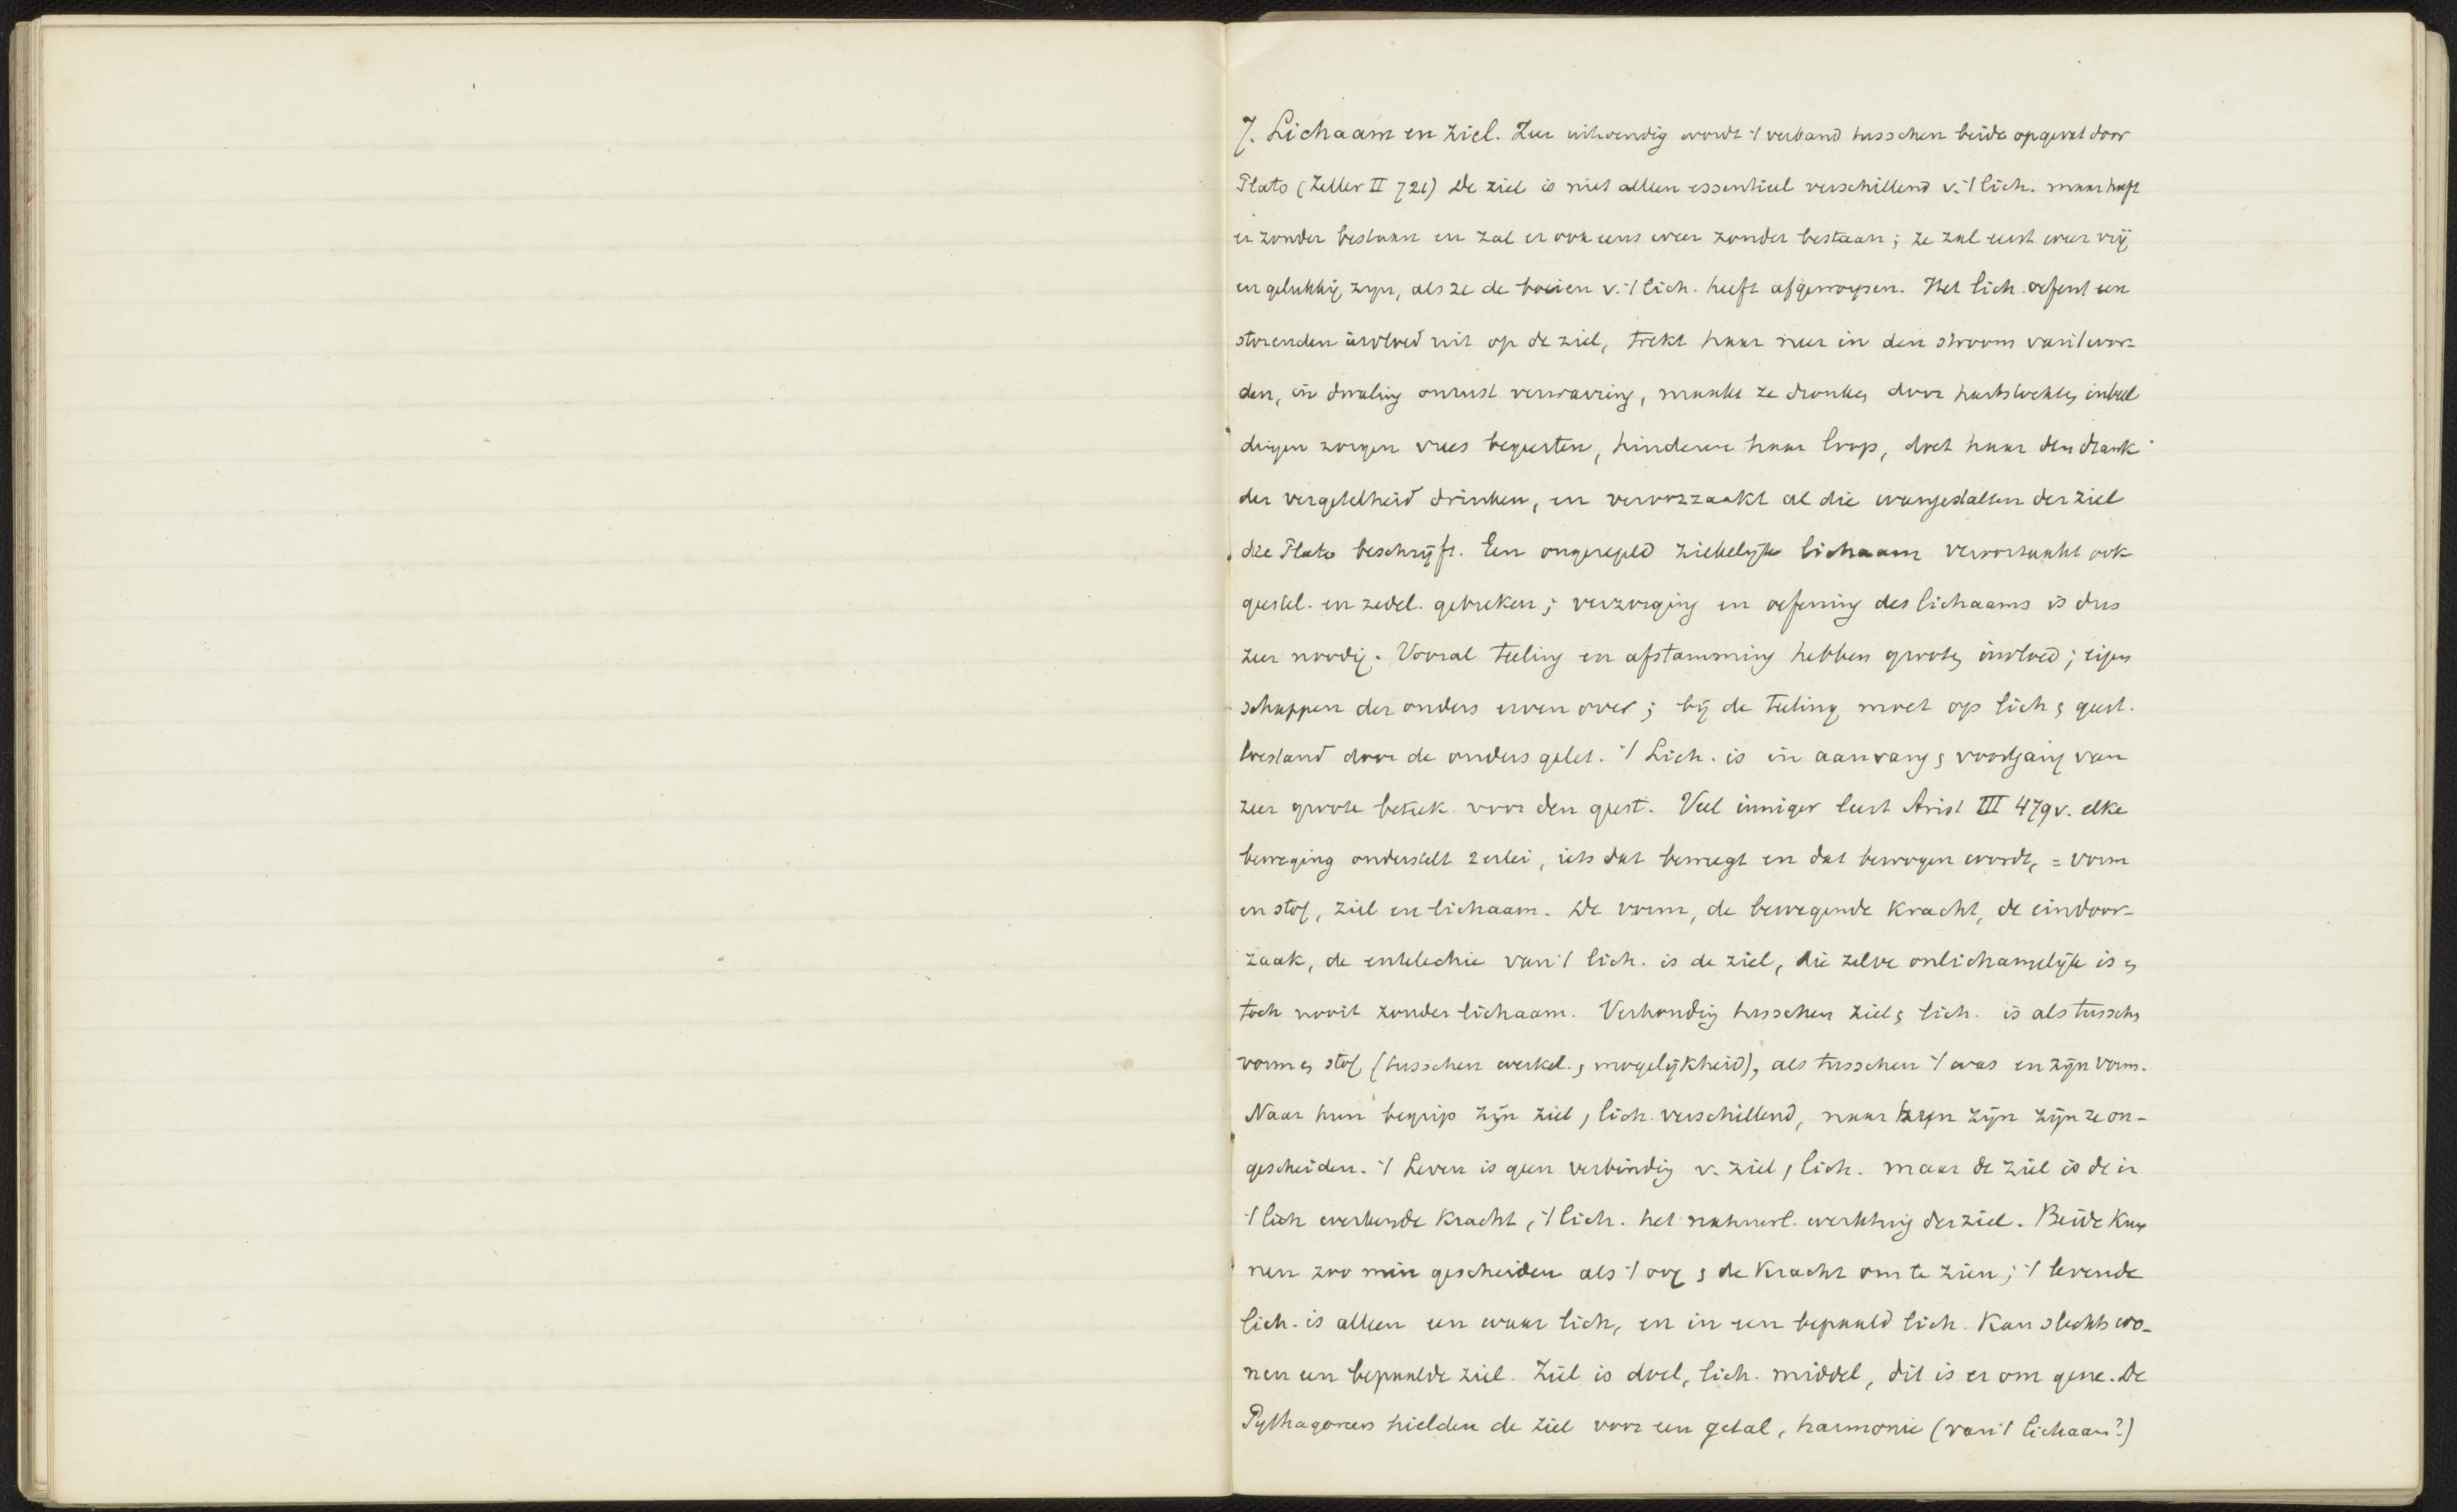 7. Lichaam en ziel. Zeer uitwendig wordt 't verband tusschen beide opgevat door
Plato (Zeller II 721) De ziel is niet alleen essentieel verschillend v. 't lich. maar heeft
er zonder bestaan en zal er ook eens weer zonder bestaan; ze zal eerst weer vrij
en gelukkig zijn, als ze de boeien v. 't lich. heeft afgeworpen. Het lich. oefent een
storenden invloed uit op de ziel, trekt haar neer in den stroom van 't wor-
den, in dwaling onrust verwarring, maakt ze dronken door hartstochten inbeel
dingen zorgen vrees begeerten, hinderen haar loop, doet haar den drank
der vergetelheid drinken, en veroorzaakt al die wangestalten der ziel
die Plato beschrijft. Een ongeregeld ziekelijk lichaam veroorzaakt ook
geestel. en zedel. gebreken; verzorging en oefening des lichaams is dus
zeer noodig. Vooral teeling en afstamming hebben grooten invloed; eigen
schappen der ouders erven over; bij de teeling moet op lich. & geest.
toestand door de ouders gelet. 't Lich. is in aanvang & voortgang van
zeer groote beteek. voor den geest. Veel inniger leert Arist III 479v. elke
beweging onderstelt 2erlei, iets dat beweegt en dat bewogen wordt, = vorm
en stof, ziel en lichaam. De vorm, de bewegende kracht, de eindoor-
zaak, de entelechie van 't lich. is de ziel, die zelve onlichamelijk is en
toch nooit zonder lichaam. Verhouding tusschen ziel & lich. is als tusschen
vorm en stof (tusschen werkel. & mogelijkheid), als tusschen 't was en zijn vorm.
Naar hun begrip zijn ziel & lich. verschillend, naar hun zijn zijn ze on-
gescheiden. 't Leven is geen verbinding v. ziel & lich. maar de ziel is de in
't lich werkende kracht, 't lich. het natuurl. werktuig der ziel. Beide kun
nen zoo min gescheiden als 't oog & de kracht om te zien; 't levende
lich. is alleen een waar lich, en in een bepaald lich. kan slechts wo-
nen een bepaalde ziel. Ziel is doel, lich. middel, dit is er om gene. De
Pythagoreers hielden de ziel voor een getal, harmonie (van 't lichaam?)